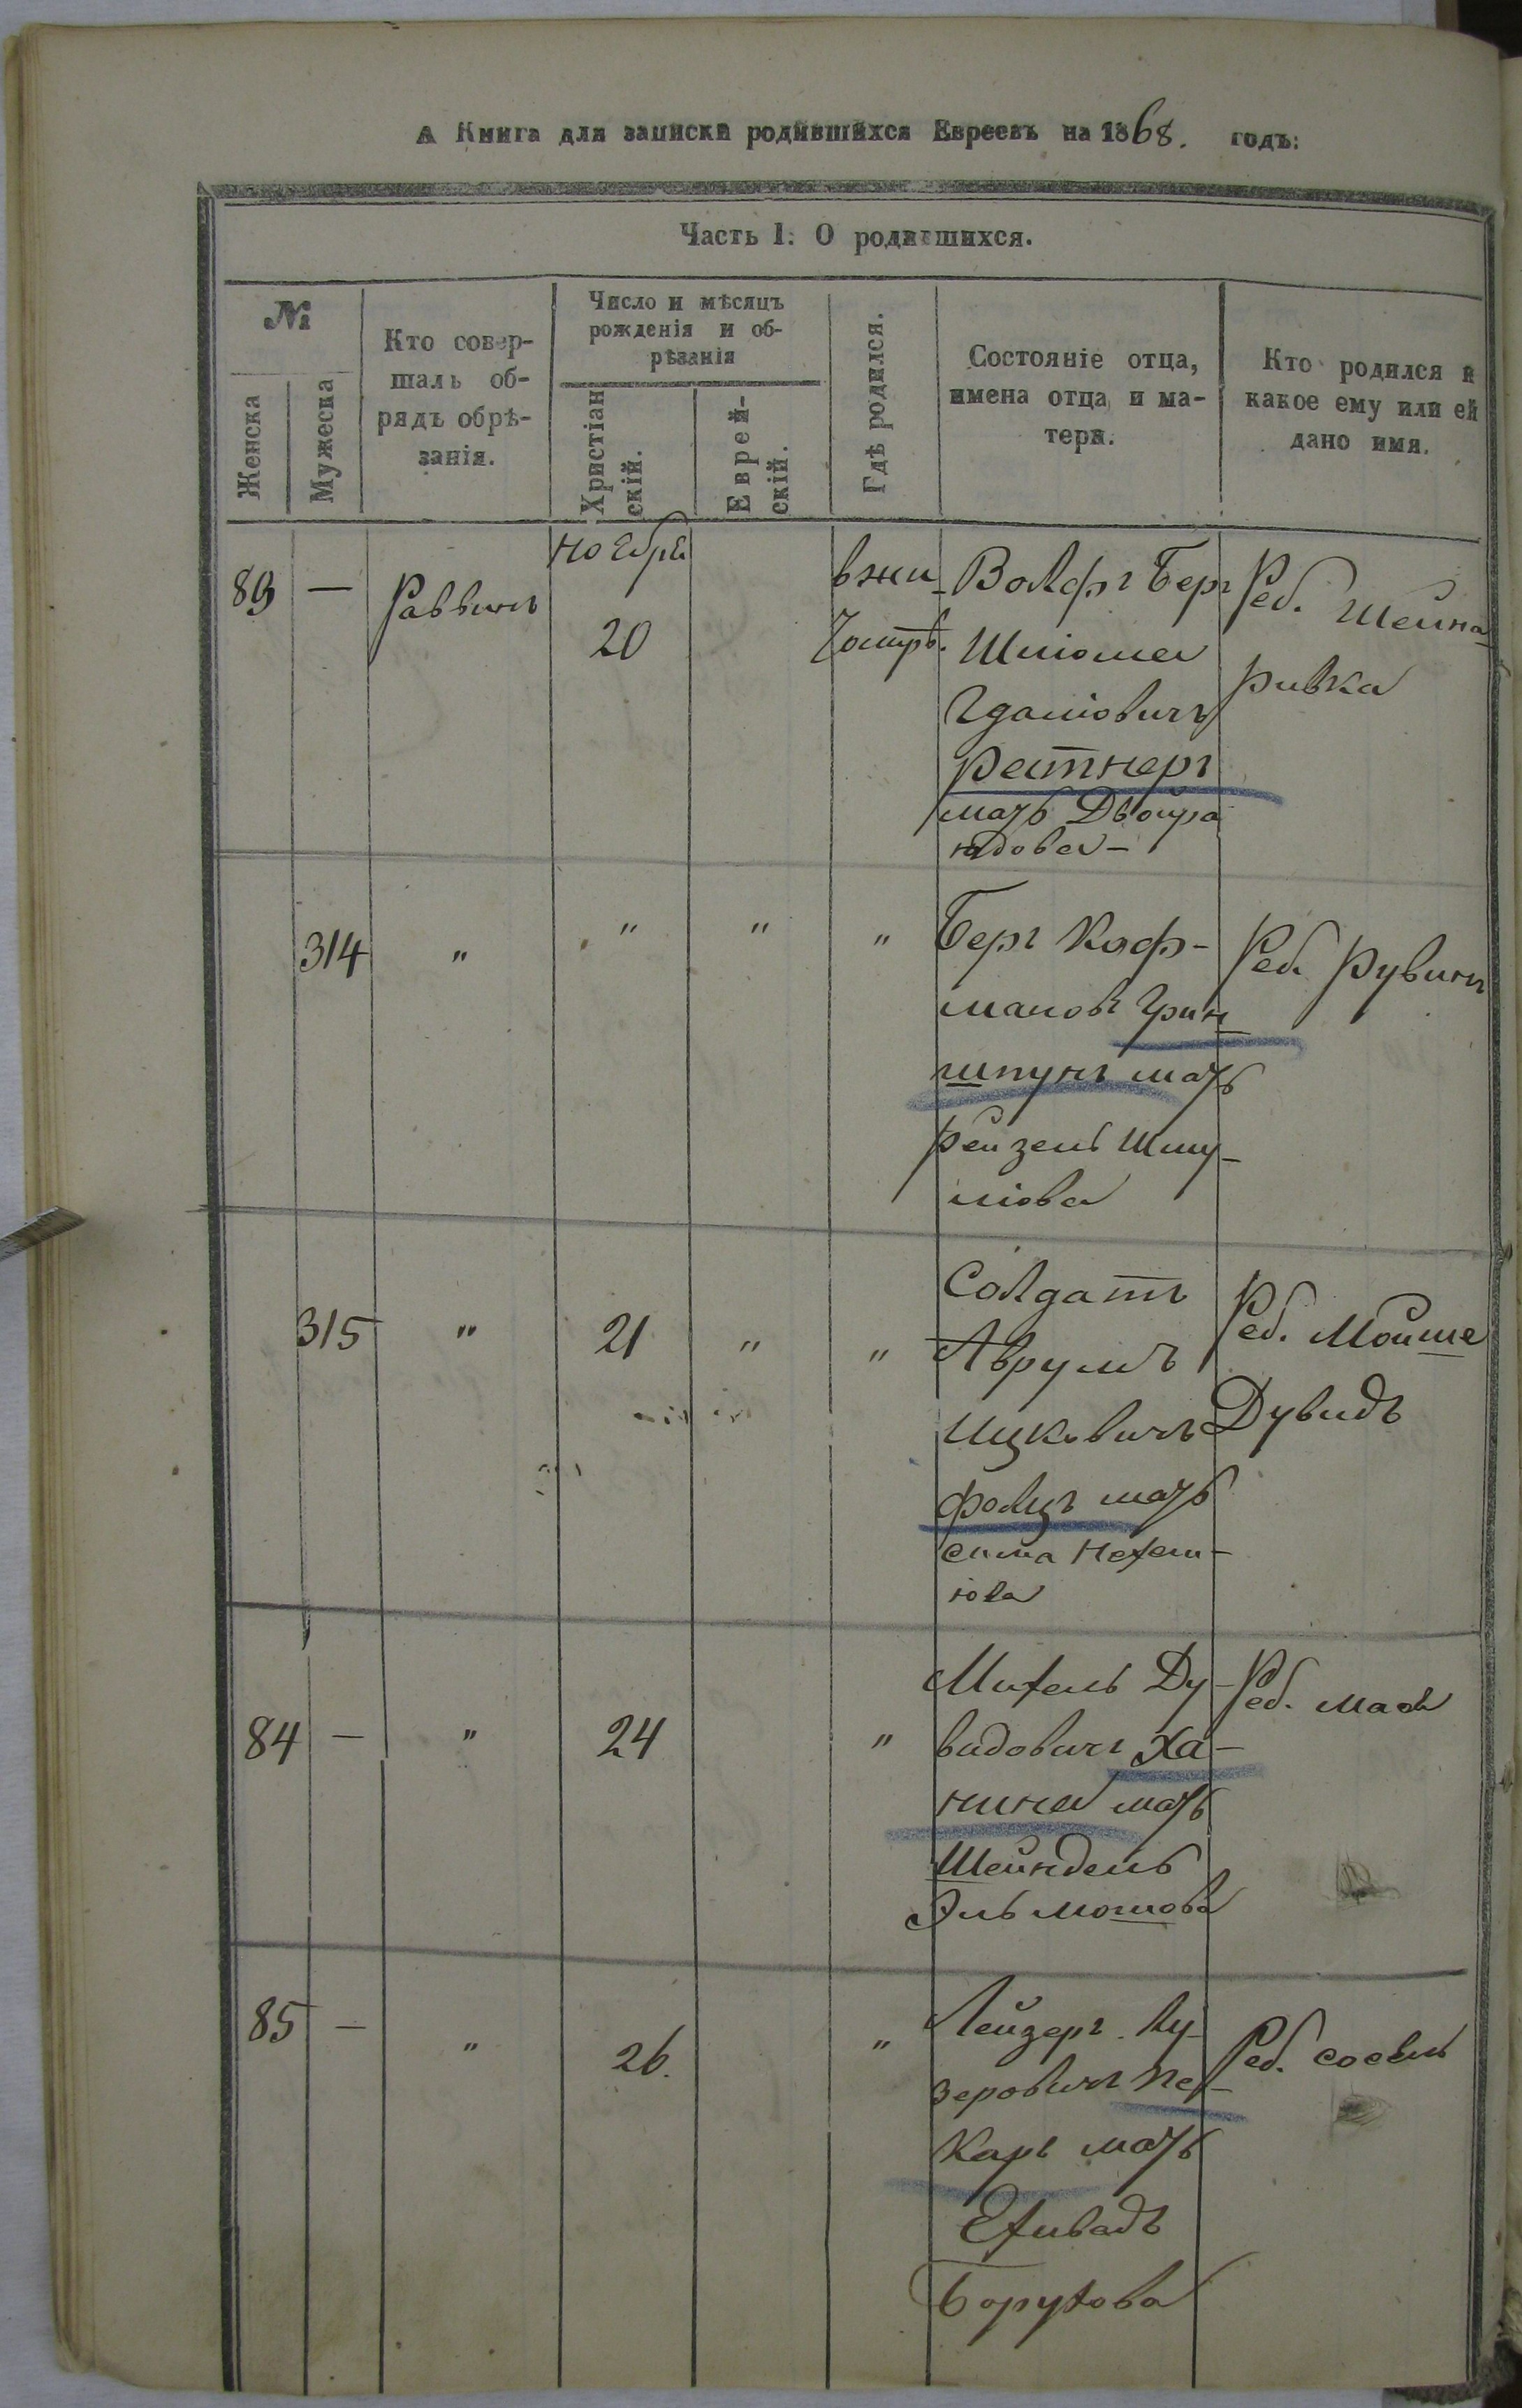 А Книга для записки родившихся Евреевъ на 1868. годъ:
Часть 1. О родившихся.
№
Женска
Мужеска
Кто совер-
шалъ об-
рядъ обрѣ-
занія.
Число и мѣсяцъ
рожденія и об-
рѣзанія
Христіан
скій.
Еврей-
скій.
Гдѣ родился.
Состояніе отца,
имена отца и ма-
тери.
Кто родился и
какое ему или ей
дано имя.
83 — Раввинъ
ноября
20
вжи-
томрѣ.
Волфъ Беръ
Шліома
Гдаліовичъ
Ратнеръ
мать Двойра
Реб. Шейна
Ривка
314 " " " "
Беръ Коф-
мановъ Грин
шпунъ мать
Рейзель Шму-
ліова
Реб. Рувинъ
315 " 21 " "
Солдатъ
Аврумъ
Ицковичъ
Фолцъ мать
Сима Нехем-
іова
Реб. Мойше
Дувидъ
84 — " 24 "
Михель Ду-
видовичъ Ха-
нина мать
Шейндель
Эльмошова
Реб. Мася
85 — " 26. "
Лейзеръ Лу-
зеровичъ Пе-
каръ мать
Ехивадъ
Борухова
Реб.